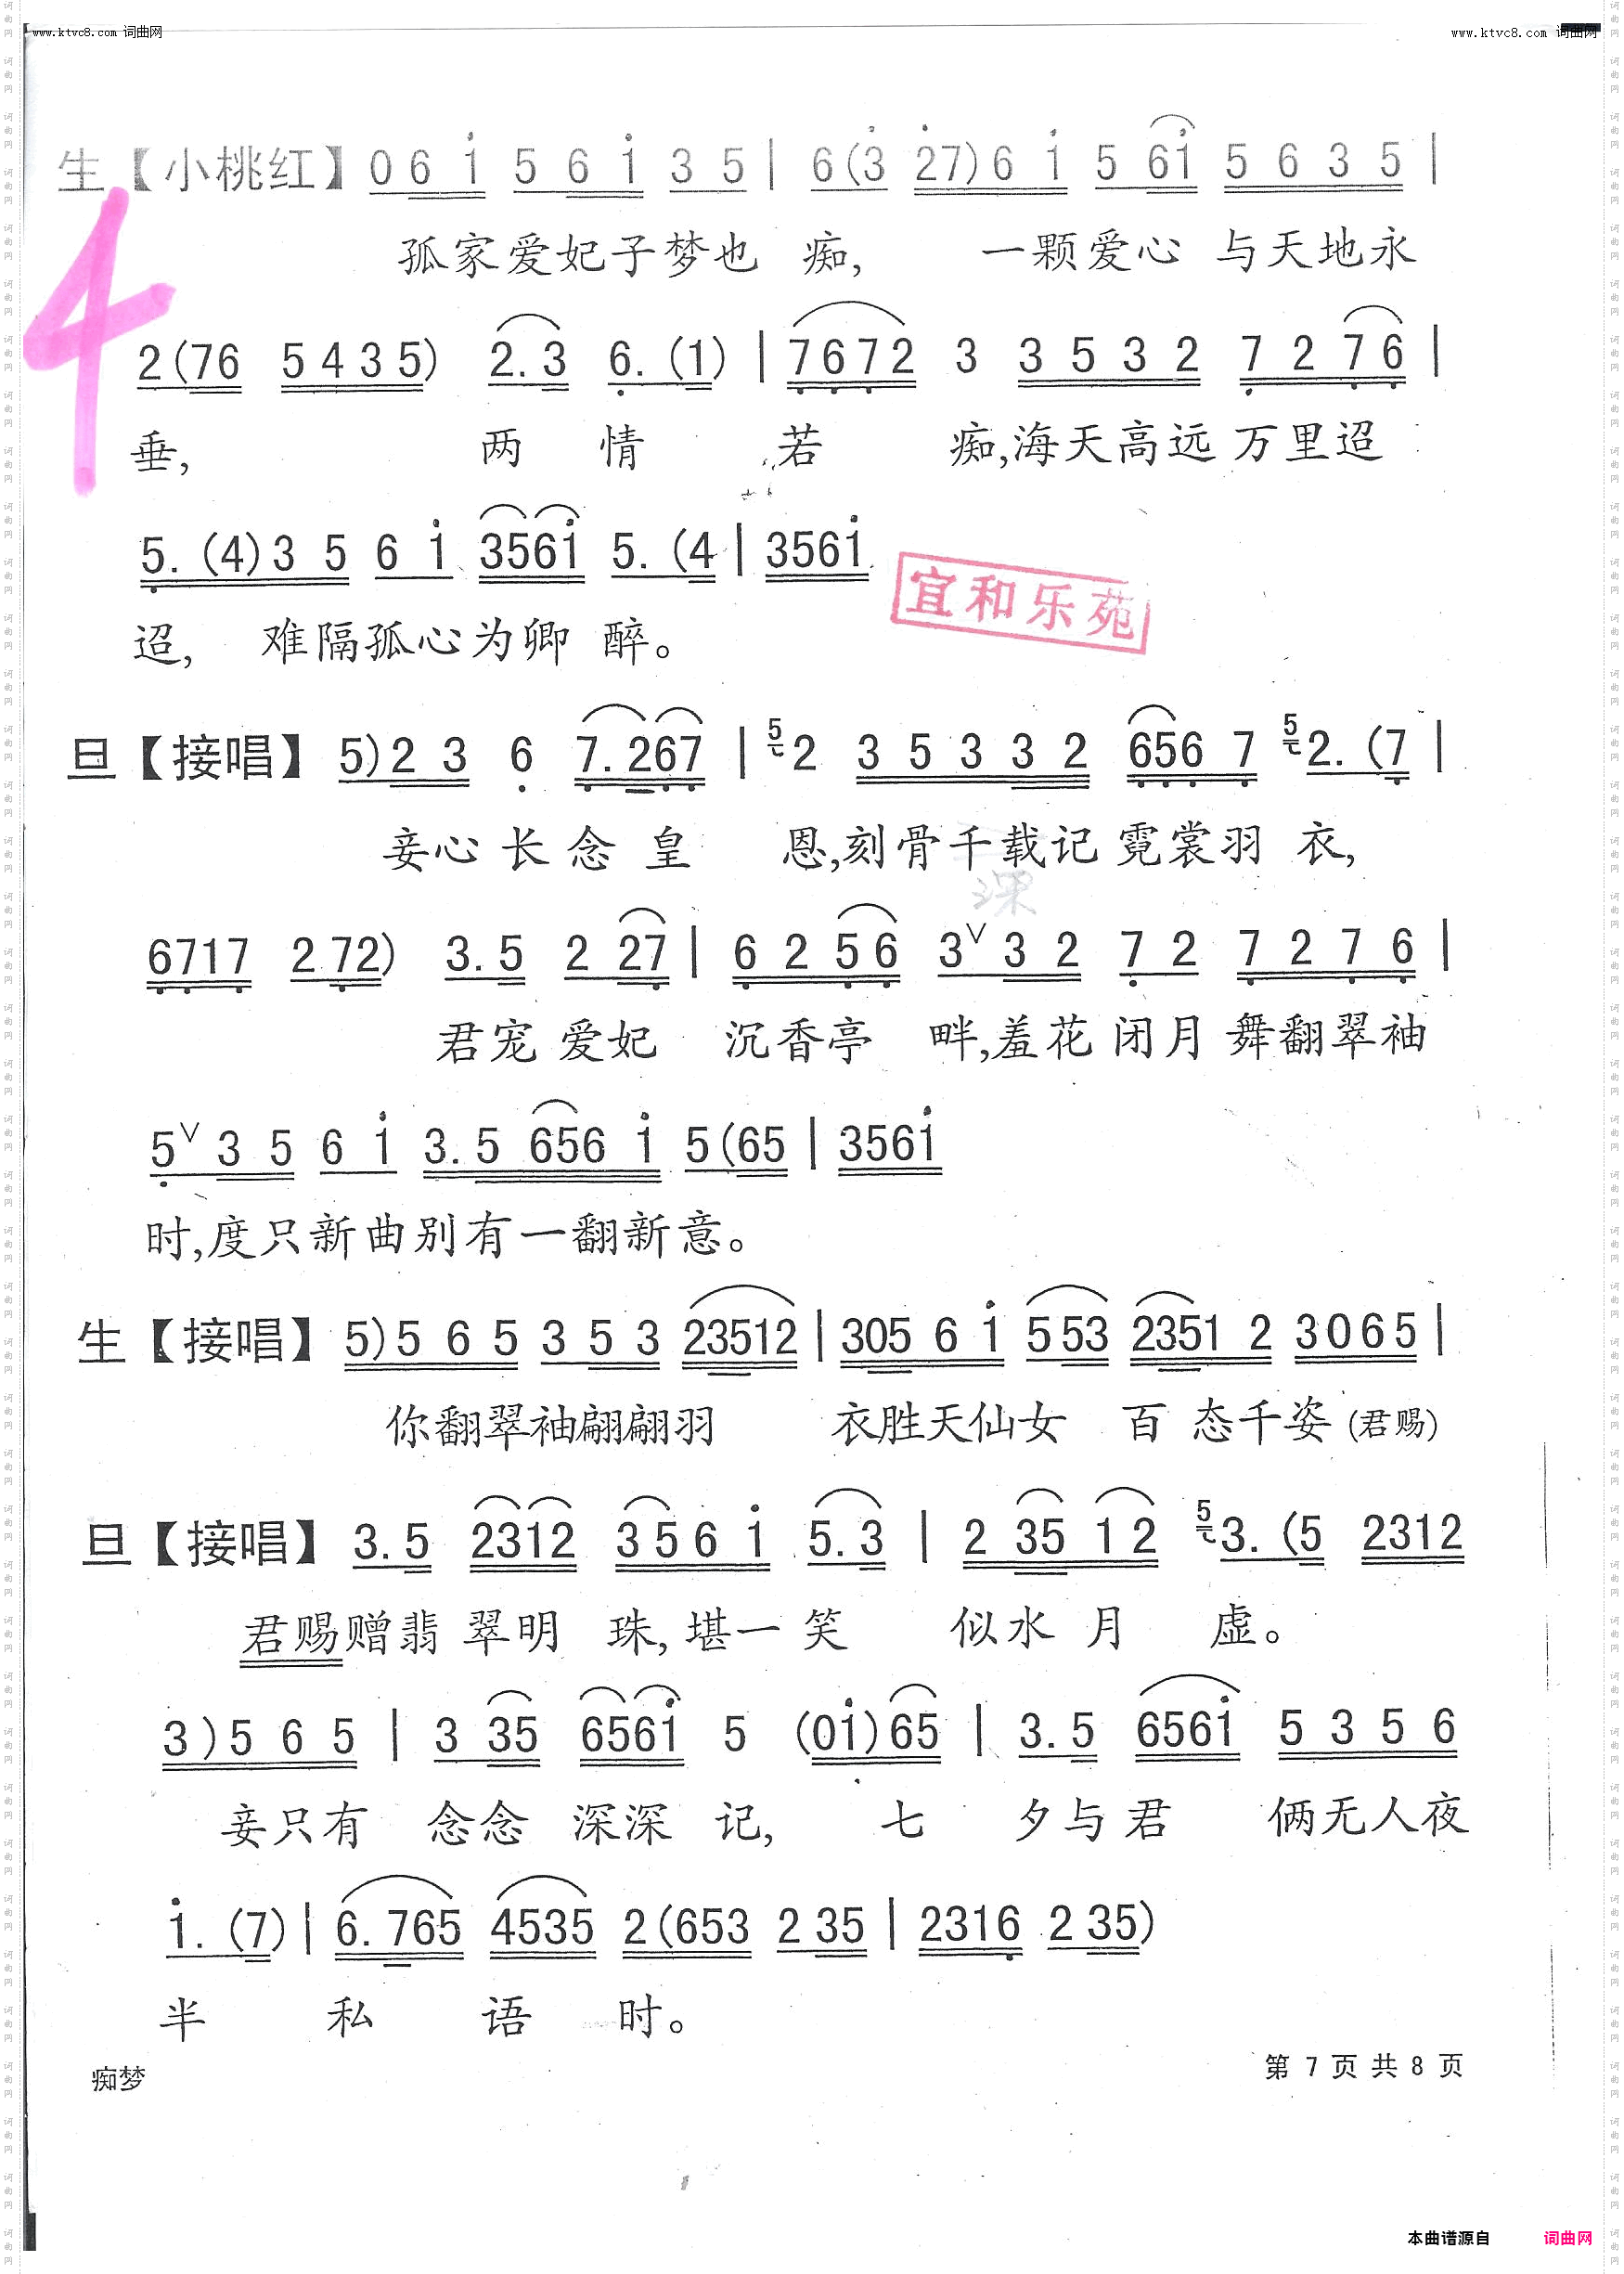 www.ktvc8.com 词曲网 www.ktvc8.com 词曲网
生【小桃红】 0 6 i 5 6 i 3 5 | 6 (3 27) 6 i 5 6i 5 6 3 5 |
孤家爱妃子梦也 痴, 一颗爱心 与天地永
4
2 (76 5 4 3 5) 2. 3 6. (1) | 7672 3 3 5 3 2 7 2 7 6 |
垂, 两 情 若 痴,海天高远 万里迢
5. (4) 3 5 6 i 356i 5. (4 | 356i
宜和乐苑
迢, 难隔孤心为卿 醉。
旦【接唱】 5) 2 3 6 7. 267 | 5 2 3 5 3 3 2 656 7 5 2. (7 |
妾心 长 念 皇 恩,刻骨千载记 霓裳羽 衣,
深
6717 2 72) 3. 5 2 27 | 6 2 5 6 3 ∨ 3 2 7 2 7 2 7 6 |
君宠 爱妃 沉香亭 畔,羞花 闭月 舞翻翠袖
5 ∨ 3 5 6 i 3. 5 656 i 5 (65 | 356i
时,度只新曲别有一翻新意。
生【接唱】 5) 5 6 5 3 5 3 23512 | 305 6 i 5 53 2351 2 3 0 6 5 |
你翻翠袖翩翩羽 衣胜天仙女 百 态千姿 (君赐)
旦【接唱】 3. 5 2312 3 5 6 i 5. 3 | 2 35 1 2 5 3. (5 2312
君赐赠翡 翠明 珠, 堪一 笑 似水 月 虚。
3 ) 5 6 5 | 3 35 656i 5 (0i) 65 | 3. 5 656i 5 3 5 6
妾只有 念念 深深 记, 七 夕与 君 俩无人夜
i. (7) | 6. 765 4535 2 (653 2 35 | 2316 2 35)
半 私 语 时。
痴梦 第 7 页 共 8 页
本曲谱源自 词曲网